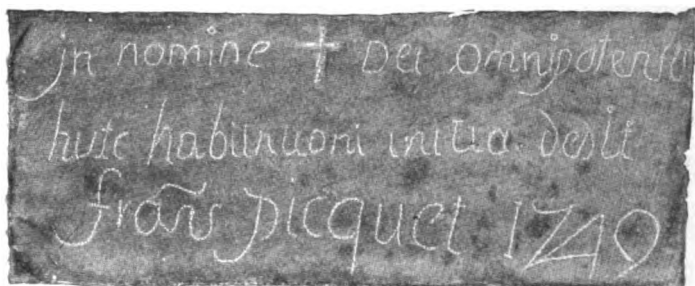 jn nomine † Dei omnipotentis
huic habitationi initia dedit
frañs picquet 1749